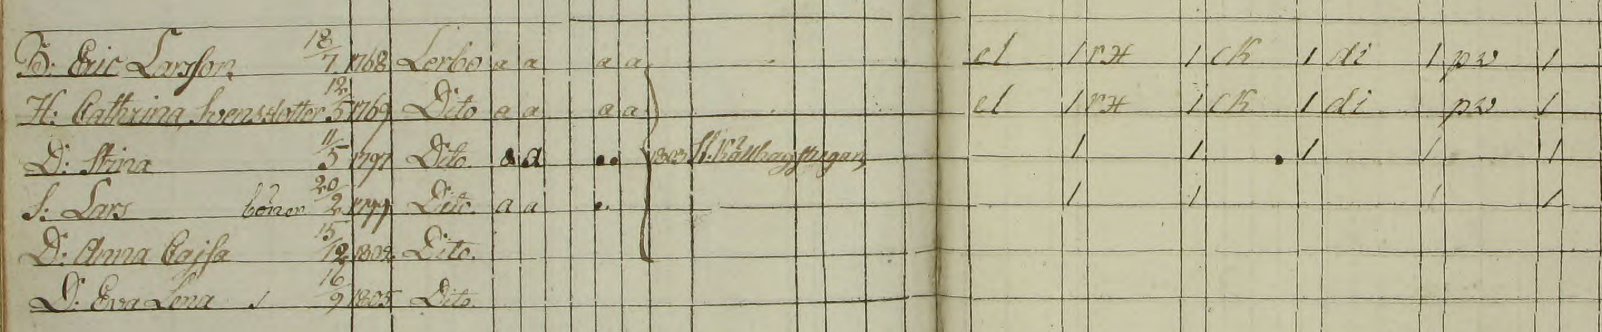 B: Eric Larsson 18/7 1768 Lerbo a a a a el 1 rH 1 CK 1 di 1 pw 1
H: Cathrina Svensdotter 12/5 1769 Dito a a a a el 1 rH 1 CK 1 di pw 1
D: Stina 11/5 1797 Dito a a 1803 1 1 1 1 1
S: Lars böner 20/2 1799 Dito a a 1 1 1 1
D: Anna Cajsa 15/12 Dito
D: Eva Lena 16/9 1805 Dito